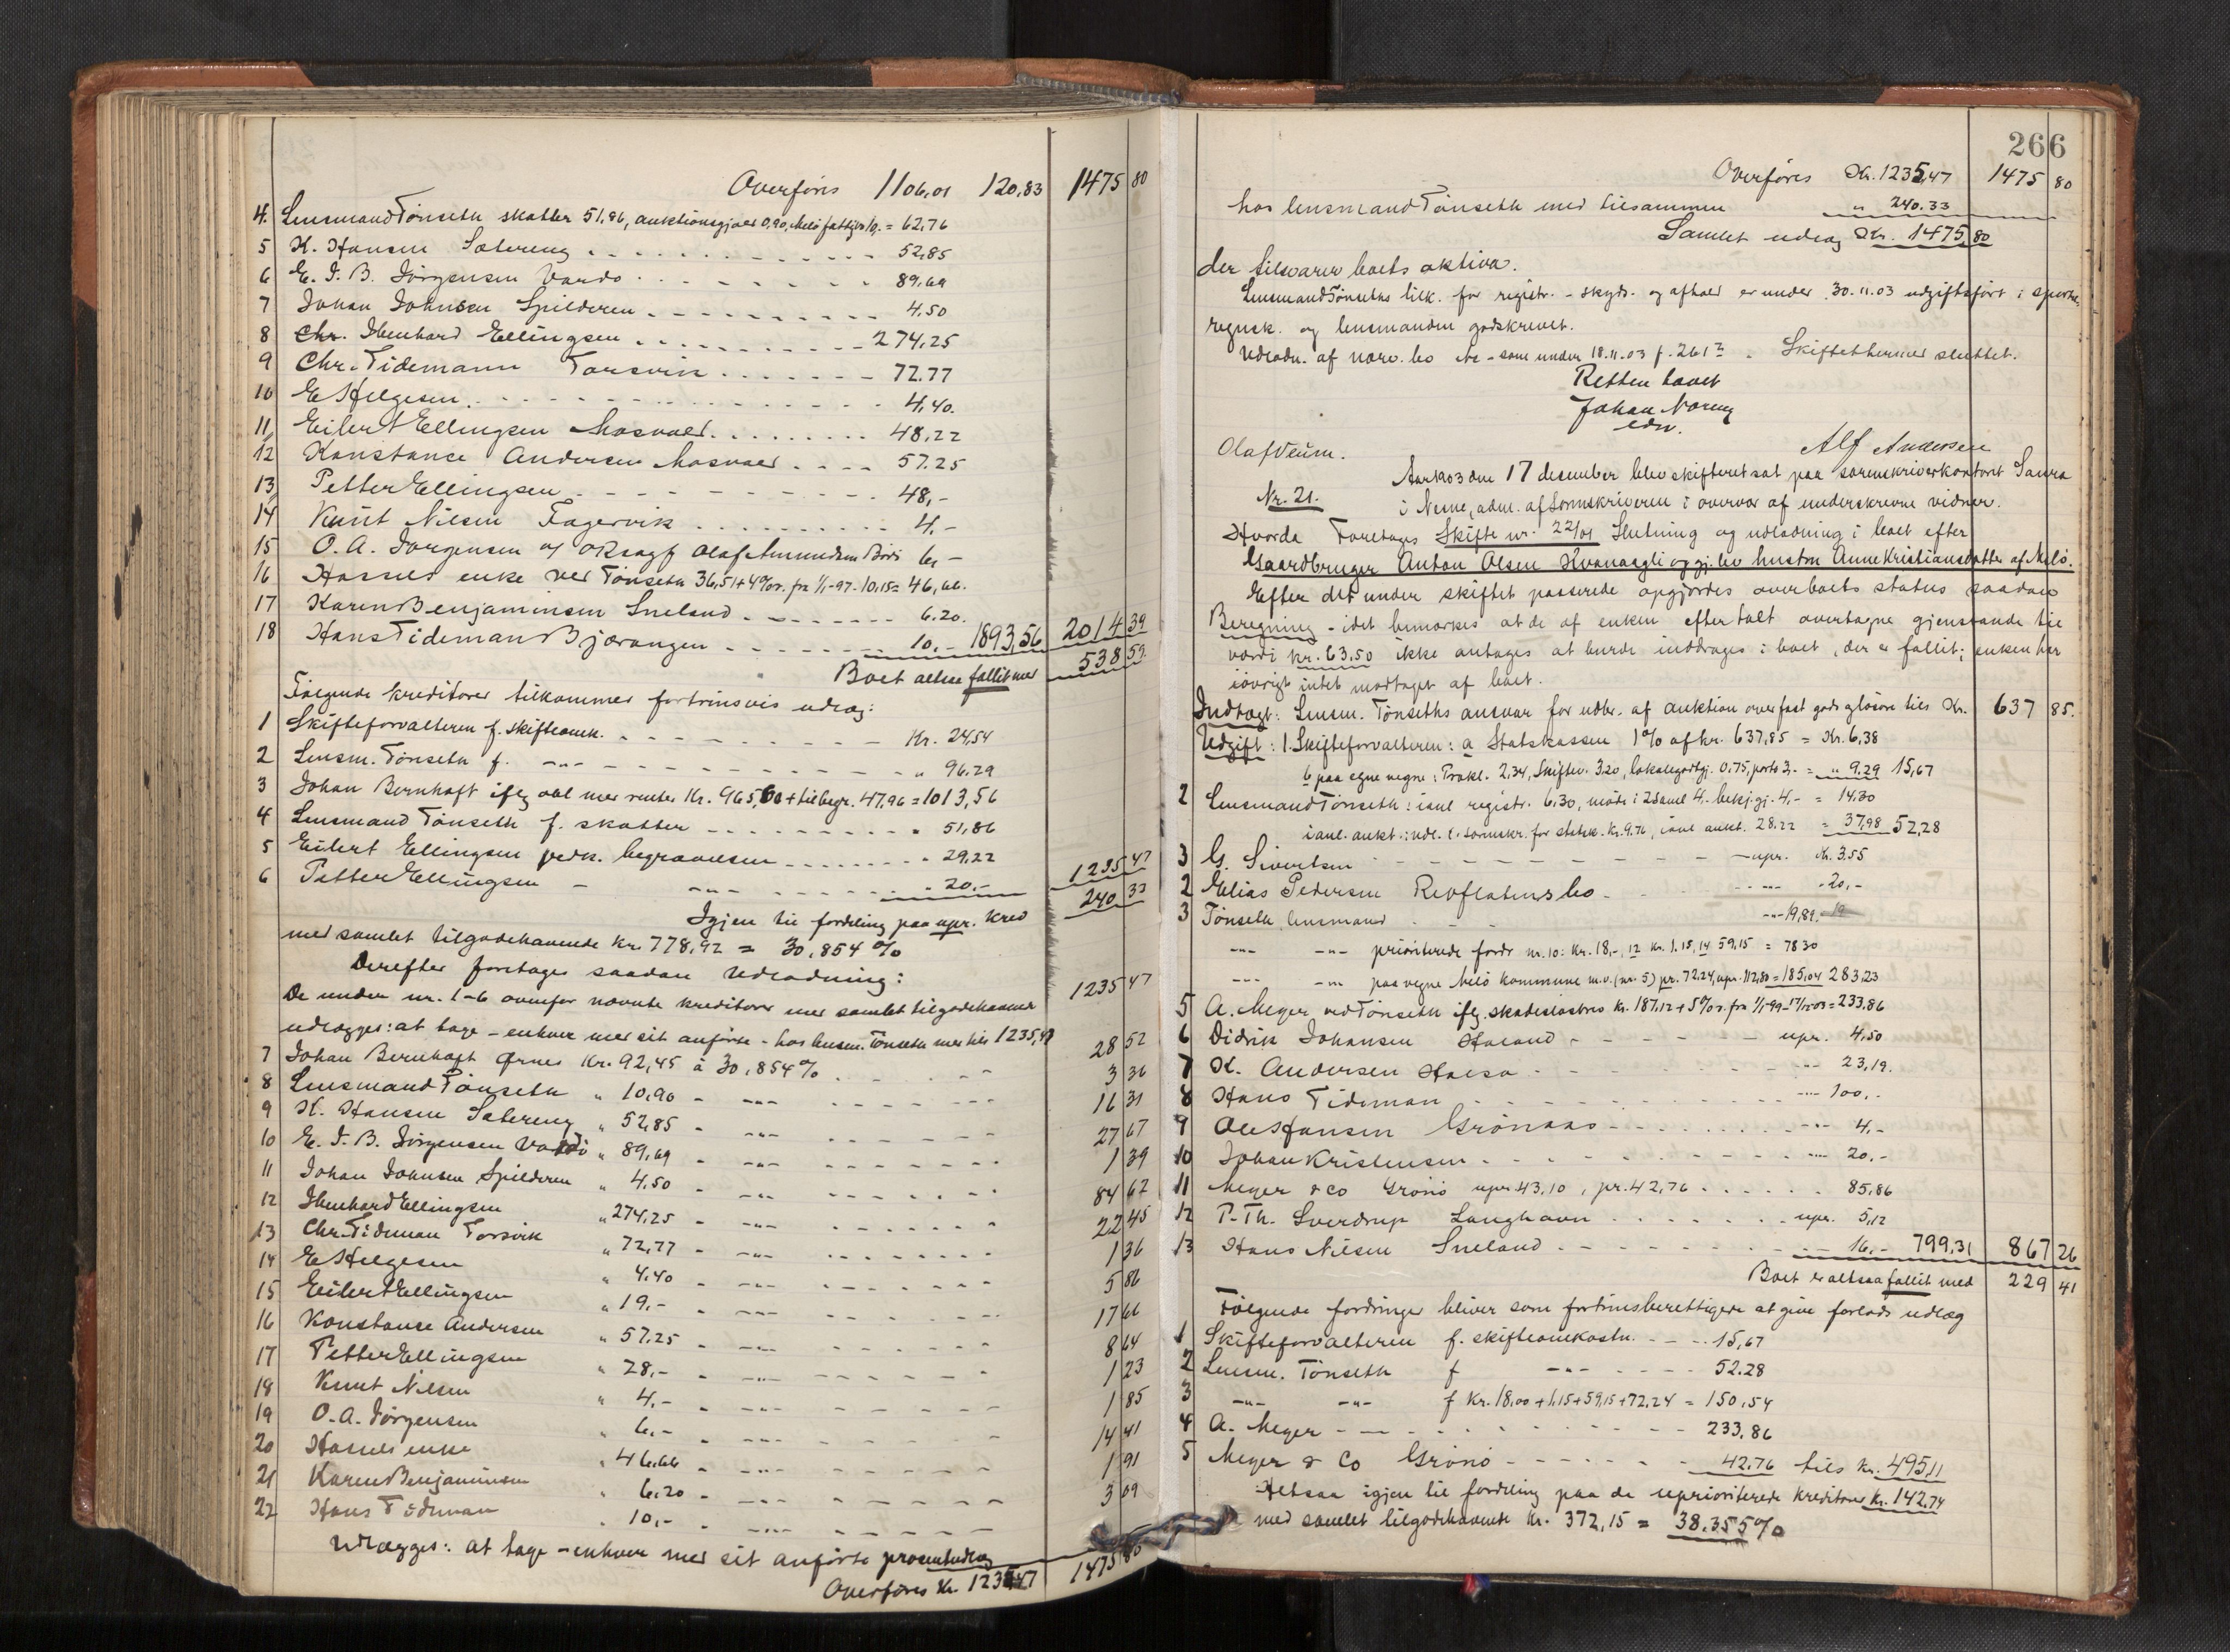 Overføres 1106,01 120,83 1475 80
4. Lensmand Tönseth skatter 51,86, auktionsgjæld 0,90, Melö fattigv. 10,- = 62,76
5 K. Hansen Sætereng 52,85
6 E. I. B. Jörgensen Vardö 89,69
7 Johan Johnsen Spilderen 4,50
8 Chr. Ibenhard Ellingsen 274,25
9 Chr. Tidemann Torsvik 72.77
10 E Helgesen 4,40.
11 Eilert Ellingsen Mosvold 48,22
12 Konstance Andersen Mosvold 57.25
13 Petter Ellingsen 48,-
14 Knut Nilsen Fagervik 4,-
15 O. A. Jørgensen v/ oRsagf Olaf Amundsen Bodö 6,-
16 Hassels enke ved Tönseth 36,51+4% r. fra 1/1-97. 10,15 = 46,66.
17 Karen Benjaminsen Sneland 6.20.
18 Hans Tideman Bjærangen 10,- 1893,56 2014 39
Boet altsaa fallit med 538 59.
Fölgende kreditorer tilkommer fortrinsvis udlæg:
1 Skifteforvalteren f. skifteomk. Kr. 24,54
2 Lensm. Tönseth f. -"- " 96.29
3 Johan Bernhoft iflg obl med renter Kr. 965,60 + tilbegr. 47,96 = 1013,56
4 Lensmand Tönseth f. skatter " 51,86
5 Eilert Ellingsen pedk. begravelsen " 29,22
6 Petter Ellingsen - -"- " 20,- 1235 47
Igjen til fordeling paa upr. kred 240 33
med samlet tilgodehavende Kr. 778,92 = 30,854 %
Derefter foretages saadan Udlodning:
De under nr. 1-6 ovenfor nævnte kreditorer med samlet tilgodehavende 1235 47
udlægges: at tage - enhver med sit anførte - hos lensm. Tönseth med tils 1235,47
7 Johan Bernhoft Ørnes Kr. 92,45 à 30,854% 28 52
8 Lensmand Tönseth " 10,90 - -"- 3 36
9 K. Hansen Sætereng " 52,85 - -"- 16 31
10 E. I. B. Jørgensen Vardö " 89,69 - -"- 27 67
11 Johan Johnsen Spilderen " 4,50 - -"- 1 39
12 Ibenhard Ellingsen " 274,25 - -"- 84 62
13 Chr. Tideman Torsvik " 72,77 - -"- 22 45
14 E Helgesen " 4.40 - -"- 1 36
15 Eilert Ellingsen " 19,- - -"- 5 86
16 Konstance Andersen " 57,25 - -"- 17 66
17 Petter Ellingsen " 28,- - -"- 8 64
18 Knut Nilsen " 4,- - -"- 1 23
19 O. A. Jørgensen " 6,- - -"- 1 85
20 Hassels enke " 46,66 - -"- 14 41
21 Karen Benjaminsen " 6.20 - -"- 1 91
22 Hans Tideman " 10,- - -"- 3 09
Udlægges: at tage - enhver med sit anførte procentudlæg
Overføres Kr. 1235,47 1475 80
266
Overføres Kr. 1235,47 1475 80
hos lensmand Tönseth med tilsammen " 240.33
Samlet udlæg Kr. 1475,80
der tilsvarer boets aktiva.
Lensmand Tönseths tilk. for registr. - skyds. og afhold er under 30.11.03 udgiftsført i sportel-
regnsk. og lensmanden godskrevet.
Udlodn. af nærv. bo som under 18.11.03 f. 261. Skiftet hermed sluttet.
Retten hævet
Johan Noreng
edv.
Olaf Veum. Alf Andersen
Nr. 21. Aar 1903 den 17 desember blev skifteret sat paa sorenskriverkontoret Sanra
i Nesne, adm. af Sorenskriveren i overvær af underskrevne vidner.
Hvorda Foretages Skifte nr. 22/01 Slutning og udlodning i boet efter
Gaardbruger Anton Olsen Kvanaagli og gj. lev hustru Anne Kristiansdatter af Melö.
Efter det under skiftet passerede opgjordes over boets status saadan
Beregning - idet bemærkes at de af enken eftertalt overtagne gjenstande til
værdi kr. 63.50 ikke antages at burde inddrages i boet, der er fallit; enken har
iøvrigt intet modtaget af boet.
Indtægt: Lensm. Tönseths ansvar for udbr. af auktion over fast gods og løsøre tils Kr. 637 85.
Udgift: 1. Skifteforvalteren: a Statskassen 1% af kr. 637,85 = Kr. 6,38
b paa egne vegne: Prokl. 2,34, Skiftev. 3.20, lokalegodtgj. 0,75, porto 3,- = " 9.29 15,67
2 Lensmand Tönseth: i anl registr. 6,30, møde i 2 saml 4,- bekj. gj. 4,- = 14.30
i anl. aukt: udl. t. sorenskr. for statsk. Kr. 9.76, i anl aukt. 28.22 = 37,98 52,28
3 G. Sivertsen upr. Kr. 3.55
2 Elias Pedersen Revflatens bo -"- 20,-
3 Tönseth, lensmand -"- 19,89.
-"- -"- prioriterede fordr nr. 10: Kr. 18,-, 12 Kr. 1.15, 14 59,15 = 78 30
-"- -"- paa vegne Melö kommune m.v. (nr. 5) pr. 72.24, upr. 112,80 = 185,04 283,23
5 A. Meyer ved Tönseth iflg. skadesløsbrev Kr. 187,12 + 5% r. fra 1/1-99-17/12-03 = 233,86
6 Didrik Johansen Haland upr. 4,50
7 K. Andersen Halsa -"- 23,19.
8 Hans Tideman -"- 100,-
9 Ole Hansen Grönaas -"- 4,-
10 Johan Kristensen -"- 20,-
11 Meyer & Co Grönö upr 43,10, pr. 42,76 85,86
12 P. Th. Sverdrup Langhavn upr. 5,12
13 Hans Nilsen Sneland 16,- 799,31 867 26
Boet er altsaa fallit med 229 41
Fölgende fordringer bliver som fortrinsberettigede at give forlods udlæg
1 Skifteforvalteren f. skifteomkostn. 15,67
2 Lensm. Tönseth f -"- 52.28
3 -"- -"- f Kr. 18,00 + 1,15 + 59,15 + 72,24 = 150,54
4 A. Meyer 233,86
5 Meyer & Co Grönö 42.76 tils Kr. 495,11
Altsaa igjen til fordeling paa de uprioriterede kreditorer Kr. 142,74
med samlet tilgodehavende Kr. 372,15 = 38,355%